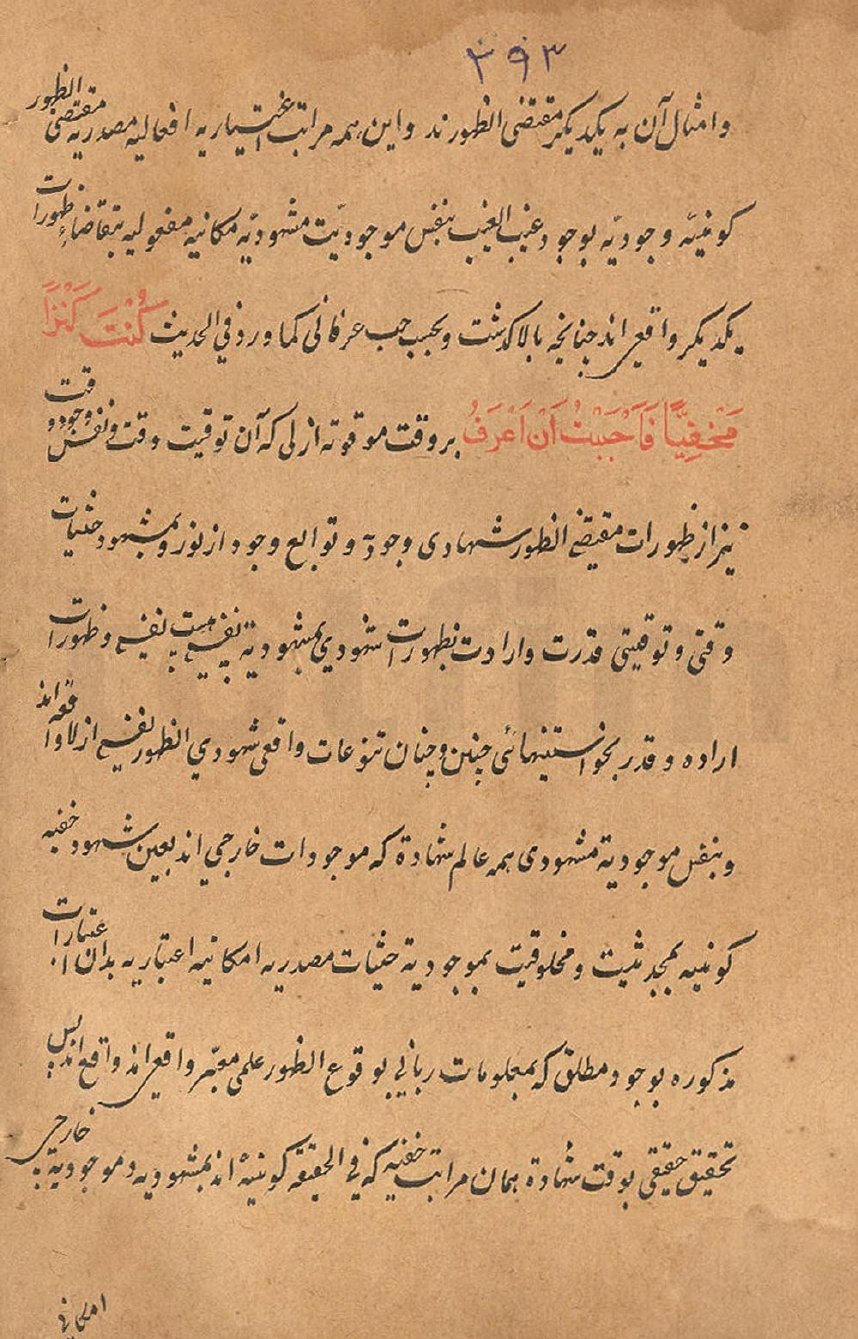 ٢٩٣
وامثال آن به یکدیگر مقتضی الظهورند واین همه مراتب اختیاریه افعالیه مصدریه مقتضی الظهور
کونیه وجودیه بوجود غیب الغیب بنفس موجودیت مشهودیه مکانیه مفعولیه بتقاضاء ظهورات
یکدیگر واقعی اند چنانچه بالا گذشت وبحسب حب عرفانی کما ورد فی الحدیث كُنْتُ كَنْزًا
مَخْفِيًّا فَاَحْبَبْتُ اَنْ اُعْرَفَ بروقت موقوته ازلی که آن توقیت وقت ونفس وجود وقت
نیز از ظهورات مقتضی الظهور شهادی وجود و توابع وجود از نور وبمشهود حثیات
وقتی و توقیتی قدرت وارادت بظهورات شهودی بمشهودیة نفس وظهورات
اراده و قدر بخواستنهائی چنین وچنان تنوعات واقعی شهودی الظهور ازلا واقعه اند
وبنفس موجودیة مشهودی همه عالم شهادة که موجودات خارجی اند بعین شهود خفیه
کونیه ومخلوقیت بموجودیة حثیات مصدریه امکانیه اعتباریه بدان اعتبارات
مذکوره بوجود مطلق که بمعلومات ربانی بوقوع الظهور علمی معبّر واقعی اند واقع اند پس
تحقیق حقیقی بوقت شهادة همان مراتب خفیه که فی الحقیقه کونیهٔ اند بمشهودیه وموجودیة خارجی